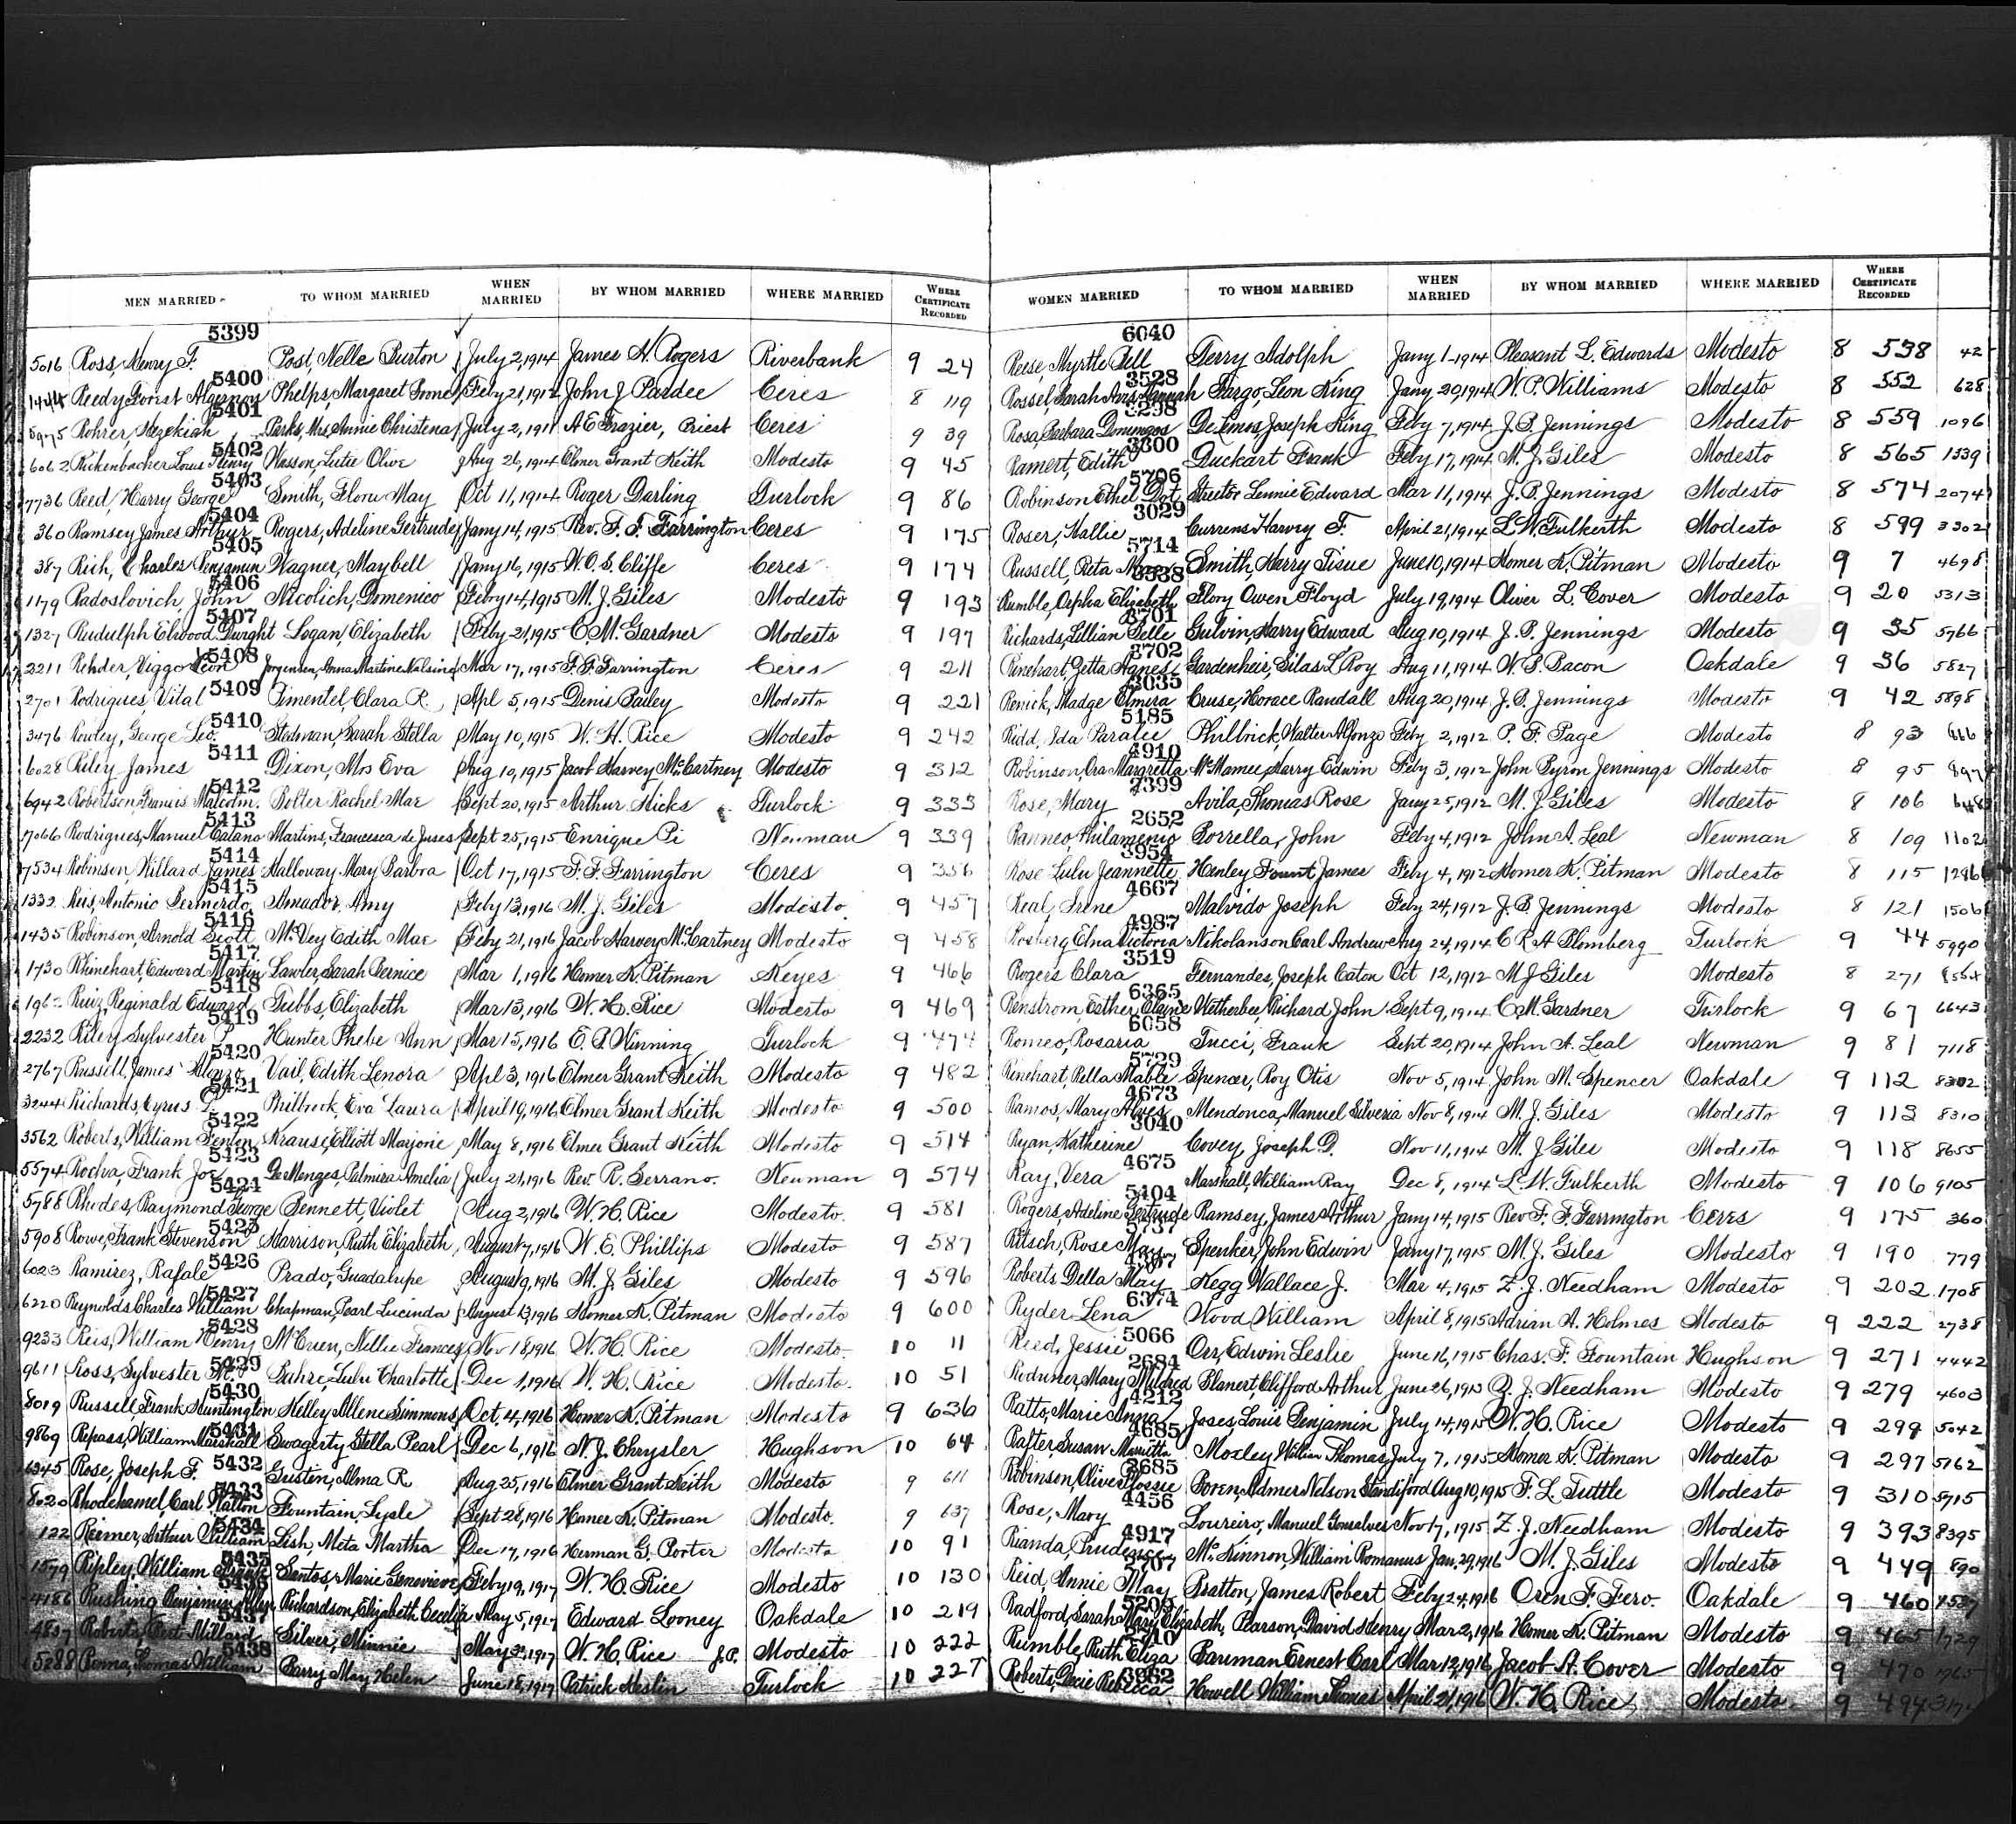 MEN MARRIED TO WHOM MARRIED WHEN MARRIED BY WHOM MARRIED WHERE MARRIED WHERE CERTIFICATE RECORDED
5399
5016 Ross, Henry F. Post, Nelle Burton July 2, 1914 James H. Rogers Riverbank 9 24
5400
1444 Reedy Forist Algernon Phelps, Margaret Ione Feby 21, 1912 John J Pardee Ceres 8 119
5401
5975 Rohrer, Hezekiah Parks, Mrs Annie Christena July 2, 1911 A E Frazier, Priest Ceres 9 39
5402
6062 Rickenbacher Louis Henry Wasson Lutie Olive Aug 26, 1914 Elmer Grant Keith Modesto 9 45
5403
7736 Reed, Harry George Smith, Flora May Oct 11, 1914 Roger Darling Turlock 9 86
5404
360 Ramsey James Arthur Rogers, Adeline Gertrude Jany 14, 1915 Rev. F. F. Farrington Ceres 9 175
5405
387 Rich, Charles Benjamin Wagner, Maybell Jany 16, 1915 W. O. S. Cliffe Ceres 9 174
5406
1179 Radoslovich, John Nicolich, Domenico Feby 14, 1915 M. J. Giles Modesto 9 193
5407
1327 Rudulph Elwood Dwight Logan, Elizabeth Feby 21, 1915 C. M. Gardner Modesto 9 197
5408
2211 Rehder, Viggo Leon Jorgensen, Anna Martine Nalsine Mar 17, 1915 F. F. Farrington Ceres 9 211
5409
2701 Rodrigues, Vital Pimentel, Clara R. Apl 5, 1915 Denis Bailey Modesto 9 221
5410
3476 Rowley, George Leo. Stedman, Sarah Stella May 10, 1915 W. H. Rice Modesto 9 242
5411
6028 Riley James Dixon, Mrs Eva Aug 10, 1915 Jacob Harvey McCartney Modesto 9 312
5412
6942 Robertson, Francis Malcolm. Bolter Rachel Mae Sept 20, 1915 Arthur Hicks Turlock 9 333
5413
7066 Rodrigues, Manuel Catano Martins, Francesca de Jesus Sept 25, 1915 Enrique Pi Newman 9 339
5414
7534 Robinson, Willard James Halloway Mary Barbra Oct 17, 1915 F. F. Farrington Ceres 9 356
5415
1332 Reis, Antonio Bermerdo Amador, Amy Feby 13, 1916 M. J. Giles Modesto 9 457
5416
1435 Robinson, Arnold Scott McVey Edith Mae Feby 21, 1916 Jacob Harvey McCartney Modesto 9 458
5417
1730 Rhinehart, Edward Martin Lawler, Sarah Bernice Mar 1, 1916 Homer K. Pitman Keyes 9 466
5418
Ruiz, Reginald Edward Tubbs, Elizabeth Mar 13, 1916 W. H. Rice Modesto 9 469
5419
2232 Riley Sylvester P Hunter Phebe Ann Mar 15, 1916 E. B. Winning Turlock 9 474
5420
2767 Russell, James Alonzo Vail, Edith Lenora Apl 3, 1916 Elmer Grant Keith Modesto 9 482
5421
3244 Richards, Cyrus P. Philbrook, Eva Laura April 19, 1916 Elmer Grant Keith Modesto 9 500
5422
3562 Roberts, William Fenton Krause, Elliott Marjorie May 8, 1916 Elmer Grant Keith Modesto 9 514
5423
5574 Rocha, Frank Joe DeMenges, Palmira Amelia July 21, 1916 Rev. R. Serrano. Newman 9 574
5424
5788 Rhodes, Raymond George Bennett, Violet Aug 2, 1916 W. H. Rice Modesto. 9 581
5425
5908 Rowe, Frank Stevenson Harrison, Ruth Elizabeth August 7, 1916 W. E. Phillips Modesto 9 587
5426
6023 Ramirez, Rafale Prado, Guadalupe August 9, 1916 M. J. Giles Modesto 9 596
5427
6220 Reynolds Charles William Chapman, Pearl Lucinda August 13, 1916 Homer K. Pitman Modesto 9 600
5428
9233 Reis, William Henry McCruen, Nellie Frances Nov 18, 1916 W. H. Rice Modesto. 10 11
5429
9611 Ross, Sylvester M. Bahre, Lulu Charlotte Dec 1, 1916 W. H. Rice Modesto. 10 51
5430
8019 Russell, Frank Huntington Kelley, Allene Simmons Oct. 4, 1916 Homer K. Pitman Modesto 9 636
5431
9869 Repass, William Marshall Swagerty Stella Pearl Dec 6, 1916 N. J. Chrysler Hughson 10 64
5432
6345 Rose, Joseph F. Guisten, Alma R Aug 25, 1916 Elmer Grant Keith Modesto 9 611
5433
8020 Rhodehamel, Carl Walton Fountain, Lysle Sept 28, 1916 Homer K. Pitman Modesto. 9 637
5434
122 Reimer, Arthur William Lish, Meta Martha Dec 17, 1916 Herman G. Porter Modesto 10 91
5435
1579 Ripley, William Frank Santos, Marie Genevieve Feby 19, 1917 W. H. Rice Modesto 10 130
5436
4186 Rushing Benjamin Allen Richardson, Elizabeth Cecelia May 5, 1917 Edward Looney Oakdale 10 219
5437
4837 Roberts, Bert Millard Silver, Minnie May 31, 1917 W. H. Rice J.P. Modesto 10 222
5438
5288 Ronna, Thomas William Barry May Helen June 18, 1917 Patrick Heslin Turlock 10 227
WOMEN MARRIED TO WHOM MARRIED WHEN MARRIED BY WHOM MARRIED WHERE MARRIED WHERE CERTIFICATE RECORDED
6040
Reese, Myrtle Bell Terry Adolph Jany 1-1914 Pleasant L. Edwards Modesto 8 538 42
3528
Rossel, Sarah Avis Hannah Fargo, Leon King Jany 20, 1914 W. P. Williams Modesto 8 552 628
3298
Rosa, Barbara Domingos DeLimos, Joseph King Feby 7, 1914 J. B. Jennings Modesto 8 559 1096
3300
Ramert, Edith Duckart Frank Feby 17, 1914 M. J. Giles Modesto 8 565 1339
5706
Robinson Ethel Dot Streeter Lennie Edward Mar 11, 1914 J. B. Jennings Modesto 8 574 2074
3029
Roser, Hallie Currens Harvey F. April 21, 1914 L. W. Fulkerth Modesto 8 599 3302
5714
Russell, Reta Mae Smith, Harry Tisue June 10, 1914 Homer K. Pitman Modesto 9 7 4698
3538
Rumble, Orpha Elizabeth Flory Owen Floyd July 19, 1914 Oliver L. Cover Modesto 9 20 5313
3701
Richards, Lillian Belle Gulvin, Harry Edward Aug 10, 1914 J. B. Jennings Modesto 9 35 5766
3702
Rinehart, Zetta Agnes Gardenheir, Silas L Roy Aug 11, 1914 W. B. Bacon Oakdale 9 36 5827
3035
Renick, Madge Elmira Cruse, Horace Randall Aug 20, 1914 J. B. Jennings Modesto 9 42 5898
5185
Ridd, Ida Paralee Philbrick, Walter Alfonzo Feby 2, 1912 P. F. Page Modesto 8 93
4910
Robinson, Ora Margretta McMamee, Harry Edwin Feby 3, 1912 John Byron Jennings Modesto 8 95
2399
Rose, Mary Avila, Thomas Rose Jany 25, 1912 M. J. Giles Modesto 8 106
2652
Ranneo, Philamenio Borrella, John Feby 4, 1912 John A. Leal Newman 8 109 1102
3954
Rose Lulu Jeannette Henley Fount James Feby 4, 1912 Homer K. Pitman Modesto 8 115 1286
4667
Real, Irene Malvido Joseph Feby 24, 1912 J. B. Jennings Modesto 8 121 1506
4987
Rosberg Elna Victoria Nikolanson Carl Andrew Aug 24, 1914 C R A Blimberg Turlock 9 44 5990
3519
Rogers Clara Fernandes, Joseph Caton Oct 12, 1912 M J Giles Modesto 8 271
6365
Renstrom, Esther Elaine Wetherbee, Richard John Sept 9, 1914 C. M. Gardner Turlock 9 67 6643
6058
Romeo, Rosaria Tucci, Frank Sept 20, 1914 John A. Leal Newman 9 81 7118
5729
Rinehart, Bella Mable Spencer, Roy Otis Nov 5, 1914 John M. Spencer Oakdale 9 112 8302
4673
Ramos, Mary Alves Mendonca, Manuel Silveria Nov 8, 1914 M. J. Giles Modesto 9 113 8310
3040
Ryan, Katherine Covey, Joseph D. Nov 11, 1914 M. J Giles Modesto 9 118 8655
4675
Ray, Vera Marshall, William Ray Dec 8, 1914 L. W. Fulkerth Modesto 9 106 9105
5404
Rogers, Adeline Gertrude Ramsey, James Arthur Jany 14, 1915 Rev F. F. Farrington Ceres 9 175 360
5737
Ritsch, Rose May Spenker, John Edwin Jany 17, 1915 M. J. Giles Modesto 9 190 779
Roberts Della May Kegg Wallace J. Mar 4, 1915 Z. J. Needham Modesto 9 202 1708
6374
Ryder Lena Wood William April 8, 1915 Adrian A. Holmes Modesto 9 222 2738
5066
Reed, Jessie Orr, Edwin Leslie June 16, 1915 Chas. F. Fountain Hughson 9 271 4442
2684
Roduner, Mary Mildred Blanert, Clifford Arthur June 26, 1915 Z. J. Needham Modesto 9 279 4603
4212
Ratto, Marie Anna Joses, Louis Benjamin July 14, 1915 W. H. Rice Modesto 9 299 5042
4685
Rafter, Susan Marietta Moxley William Thomas July 7, 1915 Homer K. Pitman Modesto 9 297 5762
2685
Robinson, Olive Flossie Boren, Admer Nelson Standiford Aug 10, 1915 F. L. Tuttle Modesto 9 310 5715
4456
Rose, Mary Loureiro, Manuel Gonsalves Nov 17, 1915 Z. J. Needham Modesto 9 393 8395
4917
Rianda, Prudence McKinnon, William Romanus Jan. 29, 1916 M. J. Giles Modesto 9 449 890
2707
Reid, Annie May Bratton, James Robert Feby 24, 1916 Oren F. Fero. Oakdale 9 460
5206
Radford, Sarah Mary Elizabeth, Pearson, David Henry Mar 2, 1916 Homer K. Pitman Modesto 9 465 1729
2710
Rumble, Ruth Eliza Bauman Ernest Carl Mar 12, 1916 Jacob A. Cover Modesto 9 470 1965
3962
Roberts, Decie Rebecca Howell William Thomas April 21, 1916 W. H. Rice Modesto. 9 494